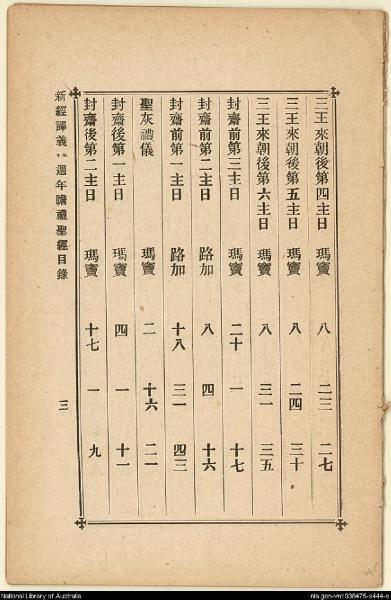 三王來朝後第四主日 瑪竇 八 二三 二七
三王來朝後第五主日 瑪竇 八 二四 三十
三王來朝後第六主日 瑪竇 八 三一 三五
封齋前第三主日 瑪竇 二十 一 十七
封齋前第二主日 路加 八 四 十六
封齋前第一主日 路加 十八 三一 四三
聖灰禮儀 瑪竇 二 十六 二一
封齋後第一主日 瑪竇 四 一 十一
封齋後第二主日 瑪竇 十七 一 九
新經譯義 週年瞻禮聖經目錄 三
National Library of Australia
nla.gen-vn1938475-s444-e